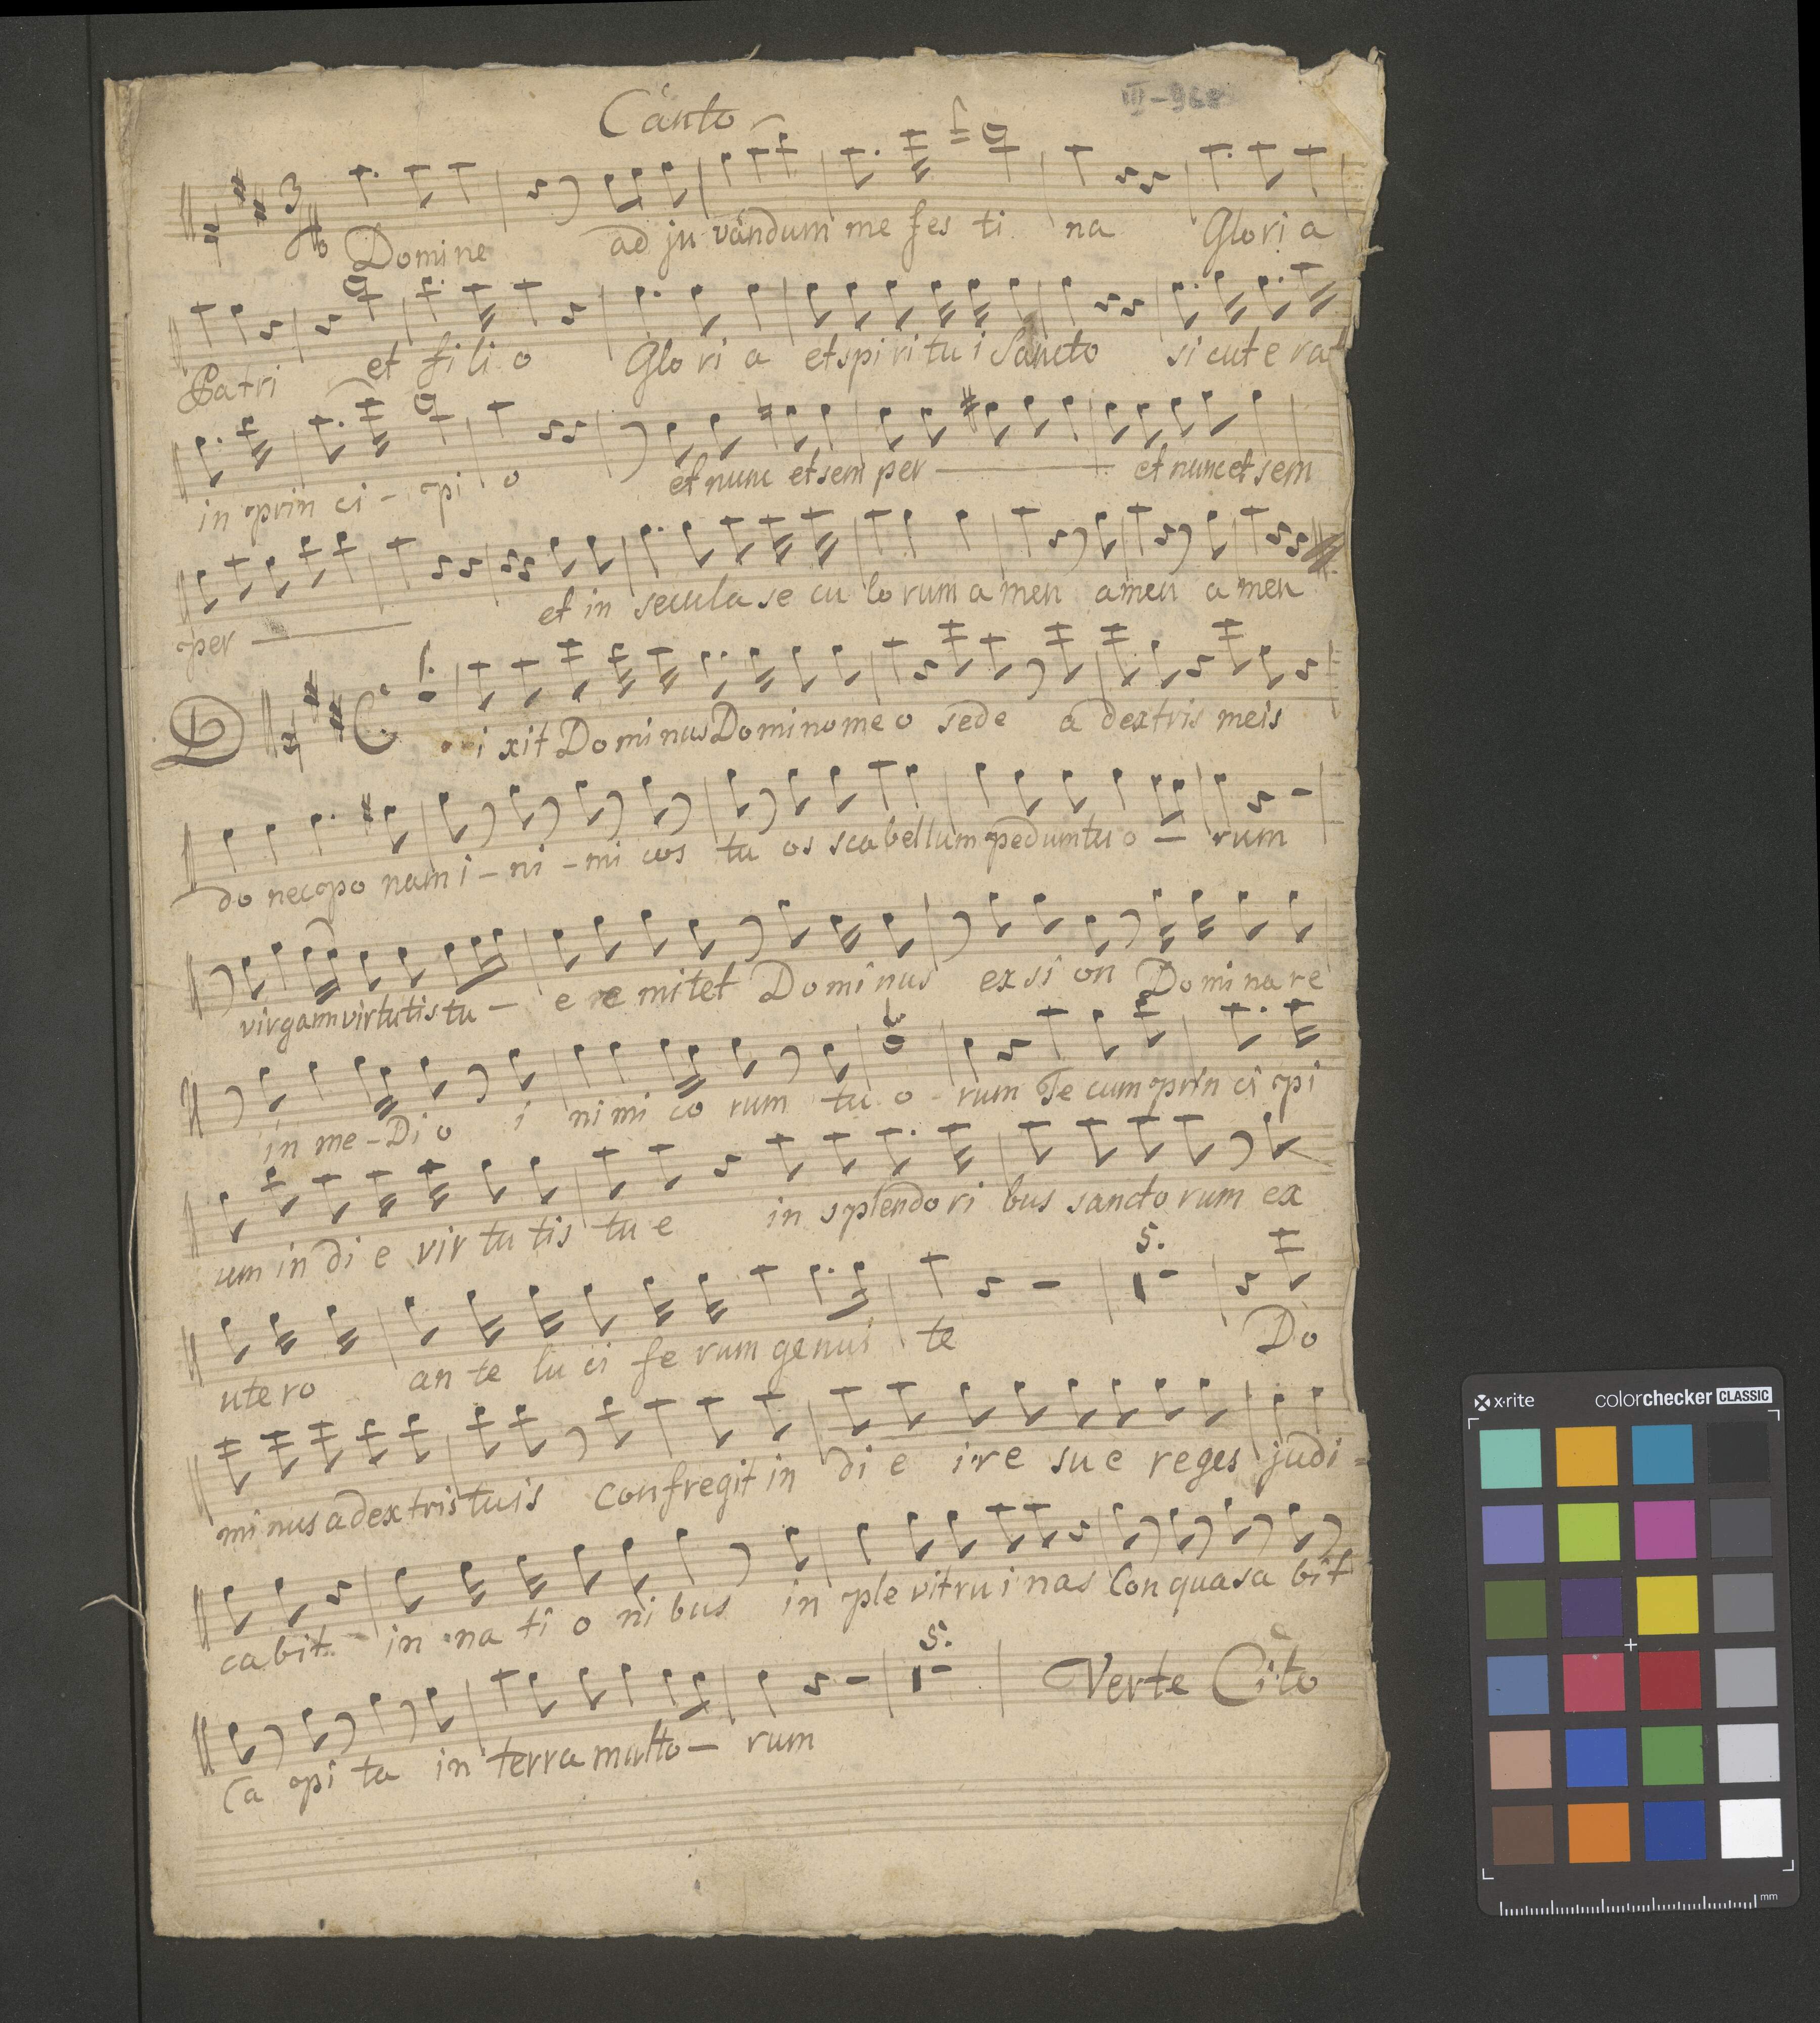 Canto
III-968
3
Domine ad ju vandum me fes ti na Glori a
Patri et fi li o Glo ri a et spi ri tu i Sancto si cut e rat
in prin ci - pi o et nunc et sem per — et nunc et sem
per — et in secula se cu lo rum a men amen a men
1.
D C i xit Do mi nus Domino me o sede a dextris meis
do nec opo nam i - ni - mi cos tu os scabellum pedum tu o — rum
virgam virtutis tu — e e mitet Dominus ex si on Dominare
in me - Di o i ni mi co rum tu o - rum Te cum prin ci pi
um in di e vir tu tis tu e in splendo ri bus sancto rum ex
5.
utero an te lu ci fe rum genui te Do
mi nus a dextris tuis confregit in di e ire su e reges judi =
cabit in na ti o ni bus in ple vit ru i nas Conquasa bit
5.
Verte Cito
Ca pi ta in terra multo — rum
x·rite colorchecker CLASSIC
mm